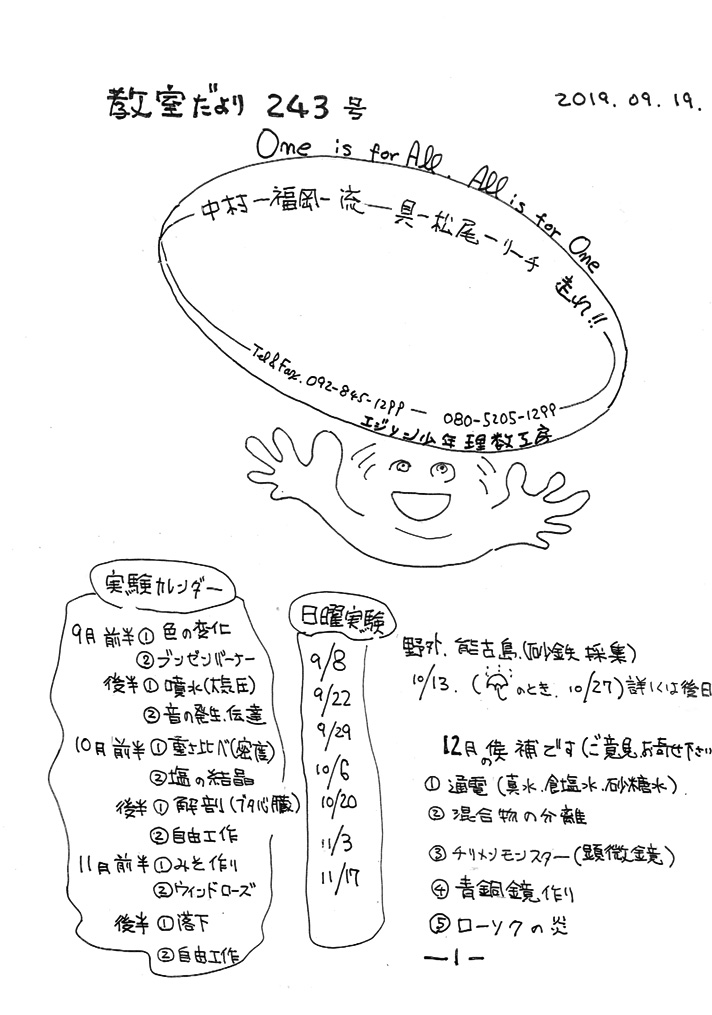 教室だより 243 号
2019.09.19.
One is for All. All is for One
中村ー福岡ー流ー具ー松尾ーリーチ 走れ!!
Tel&Fax. 092-845-1299 — 080-5205-1299
エジソン少年理数工房
実験カレンダー
9月前半① 色の変化
②ブンゼンバーナー
後半① 噴水(大気圧)
② 音の発生、伝達
10月前半①重さ比べ(密度)
②塩の結晶
後半① 解剖(ブタ心臓)
②自由工作
11月前半①みそ作り
②ウィンドローズ
後半 ①落下
②自由工作
日曜実験
9/8
9/22
9/29
10/6
10/20
11/3
11/17
野外. 能古島.(砂鉄採集)
10/13. (のとき. 10/27)詳しくは後日
12月の候補です(ご意見お寄せ下さい
① 通電 (真水.食塩水.砂糖水)
② 混合物の分離
③ チリメンモンスター(顕微鏡)
④ 青銅鏡作り
⑤ ローソクの炎
—1—